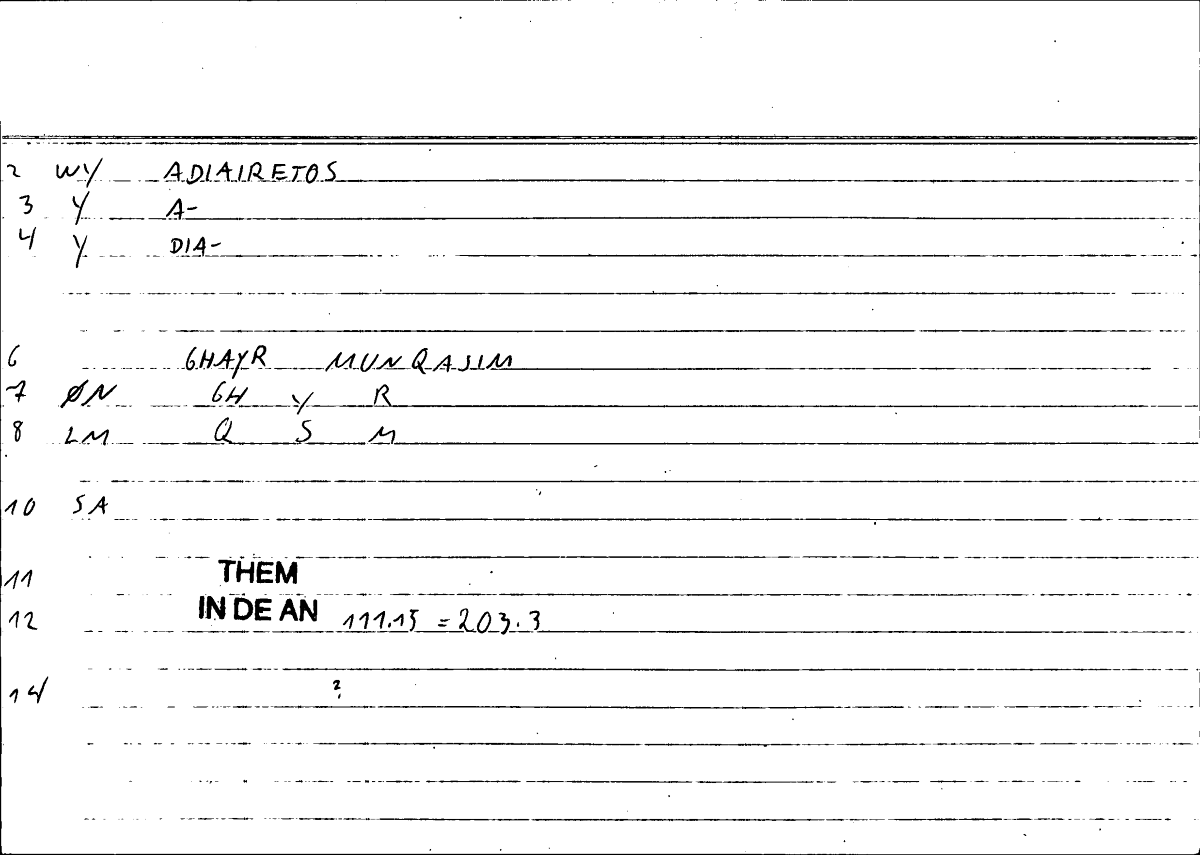 2 WY ADIAIRETOS
3 Y A-
4 Y DIA-
6 GHAYR MUNQASIM
7 ØN GH Y R
8 LM Q S M
10 SA
11 THEM
12 IN DE AN 111.15 = 203.3
14 ?